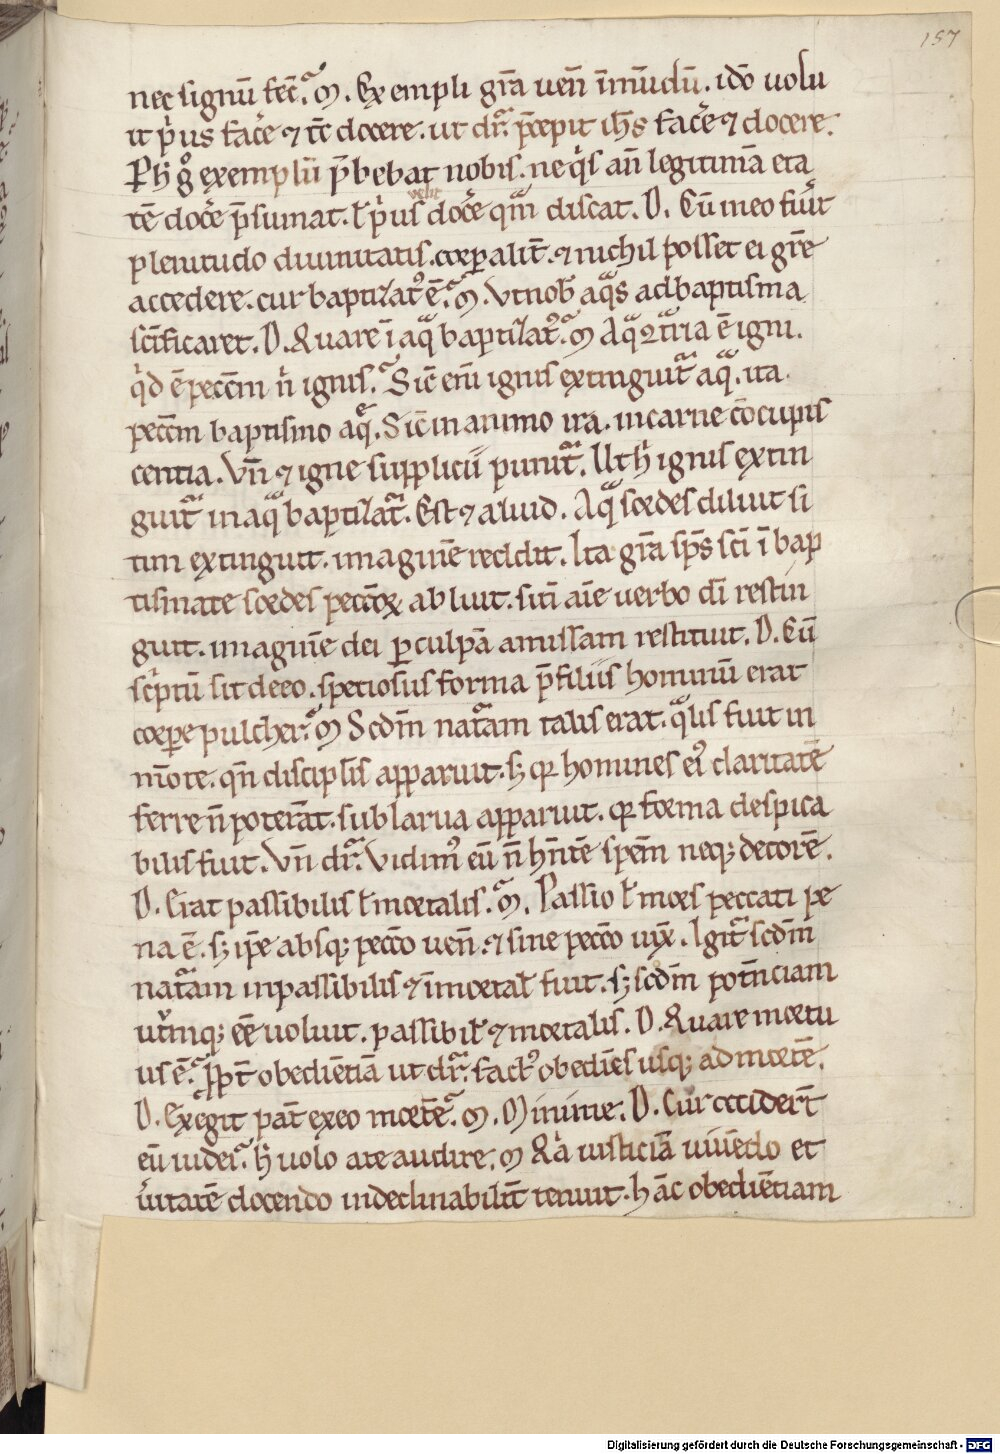 157
nec signū fec̄. ᴍ. Exempli gr̄a uen̄ īmūdū. idō uolu
it p̓us fac̓e ⁊ tc̄ docere. ut dr̄. p̄cepit ih̄s fac̓e ⁊ docere.
P h̓ g̊ exemplū p̄bebat nobis. ne q̓s an̄ legitimā eta
velit
tē doc̓e p̄sumat. ł p̓us doc̓e qm̄ discat. D. Cū in eo fu̓it
plenitudo diuinitatis. corꝑalit̄. ⁊ nichil posset ei gr̄e
accedere. cur baptizatꝰ ē. ᴍ. Vt nob̄ aqͣs ad baptisma
sc̄ificaret. D. Quare ī aqͣ baptizatꝰ. ᴍ Aqͣ ꝯtͣria ē igni.
q̓d ē pecc̄m n̓ ignis. Sic̄ eni̅ ignis extinguitͬ aqͣ. ita
pecc̄m baptismo aqͣ. Sic̄ in animo ira. in carne cōcupis
centia. Vn̄ ⁊ igne supplicii punitͬ. Ut h̓ ignis extin
guatͬ in aqͣ baptizatͬ. Est ⁊ aliud. Aqͣ sordes diluit si
tim extinguit. imaginē reddit. Ita gr̄a sp̄s sc̄i ī bap
tismate sordes pecc̄oꝝ abluit. sitī aīe uerbo dī restin
guit. imaginē dei ꝑ culpā amissam restituit. D. Cū
sc̓ptū sit de eo. speciosus forma p̄ filiis hominū erat
corꝑe pulcher. ᴍ Scd̄m natͣam talis erat. qͣlis fuit in
mōte. qn̄ discipl̄is apparuit. sꝫ qꝛ homines eiꝰ claritatē
ferre n̄ poterāt. sub larua apparuit. qꝛ forma despica
bilis fuit. Vn̄ dr̄. Vidimꝰ eū n̄ hn̄tē spēm neqꝫ decorē.
D. Erat passibilis ł mortalis. ᴍ. Passio ł mors peccati pe
na ē. sꝫ ip̄e absqꝫ pecc̄o uen̄. ⁊ sine pecc̄o uix̄. Igitͬ scd̄m
natͣam inpassibilis ⁊ īmortal̄ fuit. sꝫ scd̄m potn̄ciam
ut̓mqꝫ eē uoluit. passibil̄ ⁊ mortalis. D. Quare mortu
us ē. ꝓpt̄ obediētiā ut dr̄. factꝰ obediēs usqꝫ ad mortē.
D. Exegit pat̄ ex eo mortē. ᴍ. Minime. D. Cur occider̄t
eū iudei. h̓ uolo a te audire. ᴍ Q̓a iusticiā uiuēdo et
u̓itatē docendo indeclinabilit̄ tenuit. hāc obediētiam
Digitalisierung gefördert durch die Deutsche Forschungsgemeinschaft - DFG